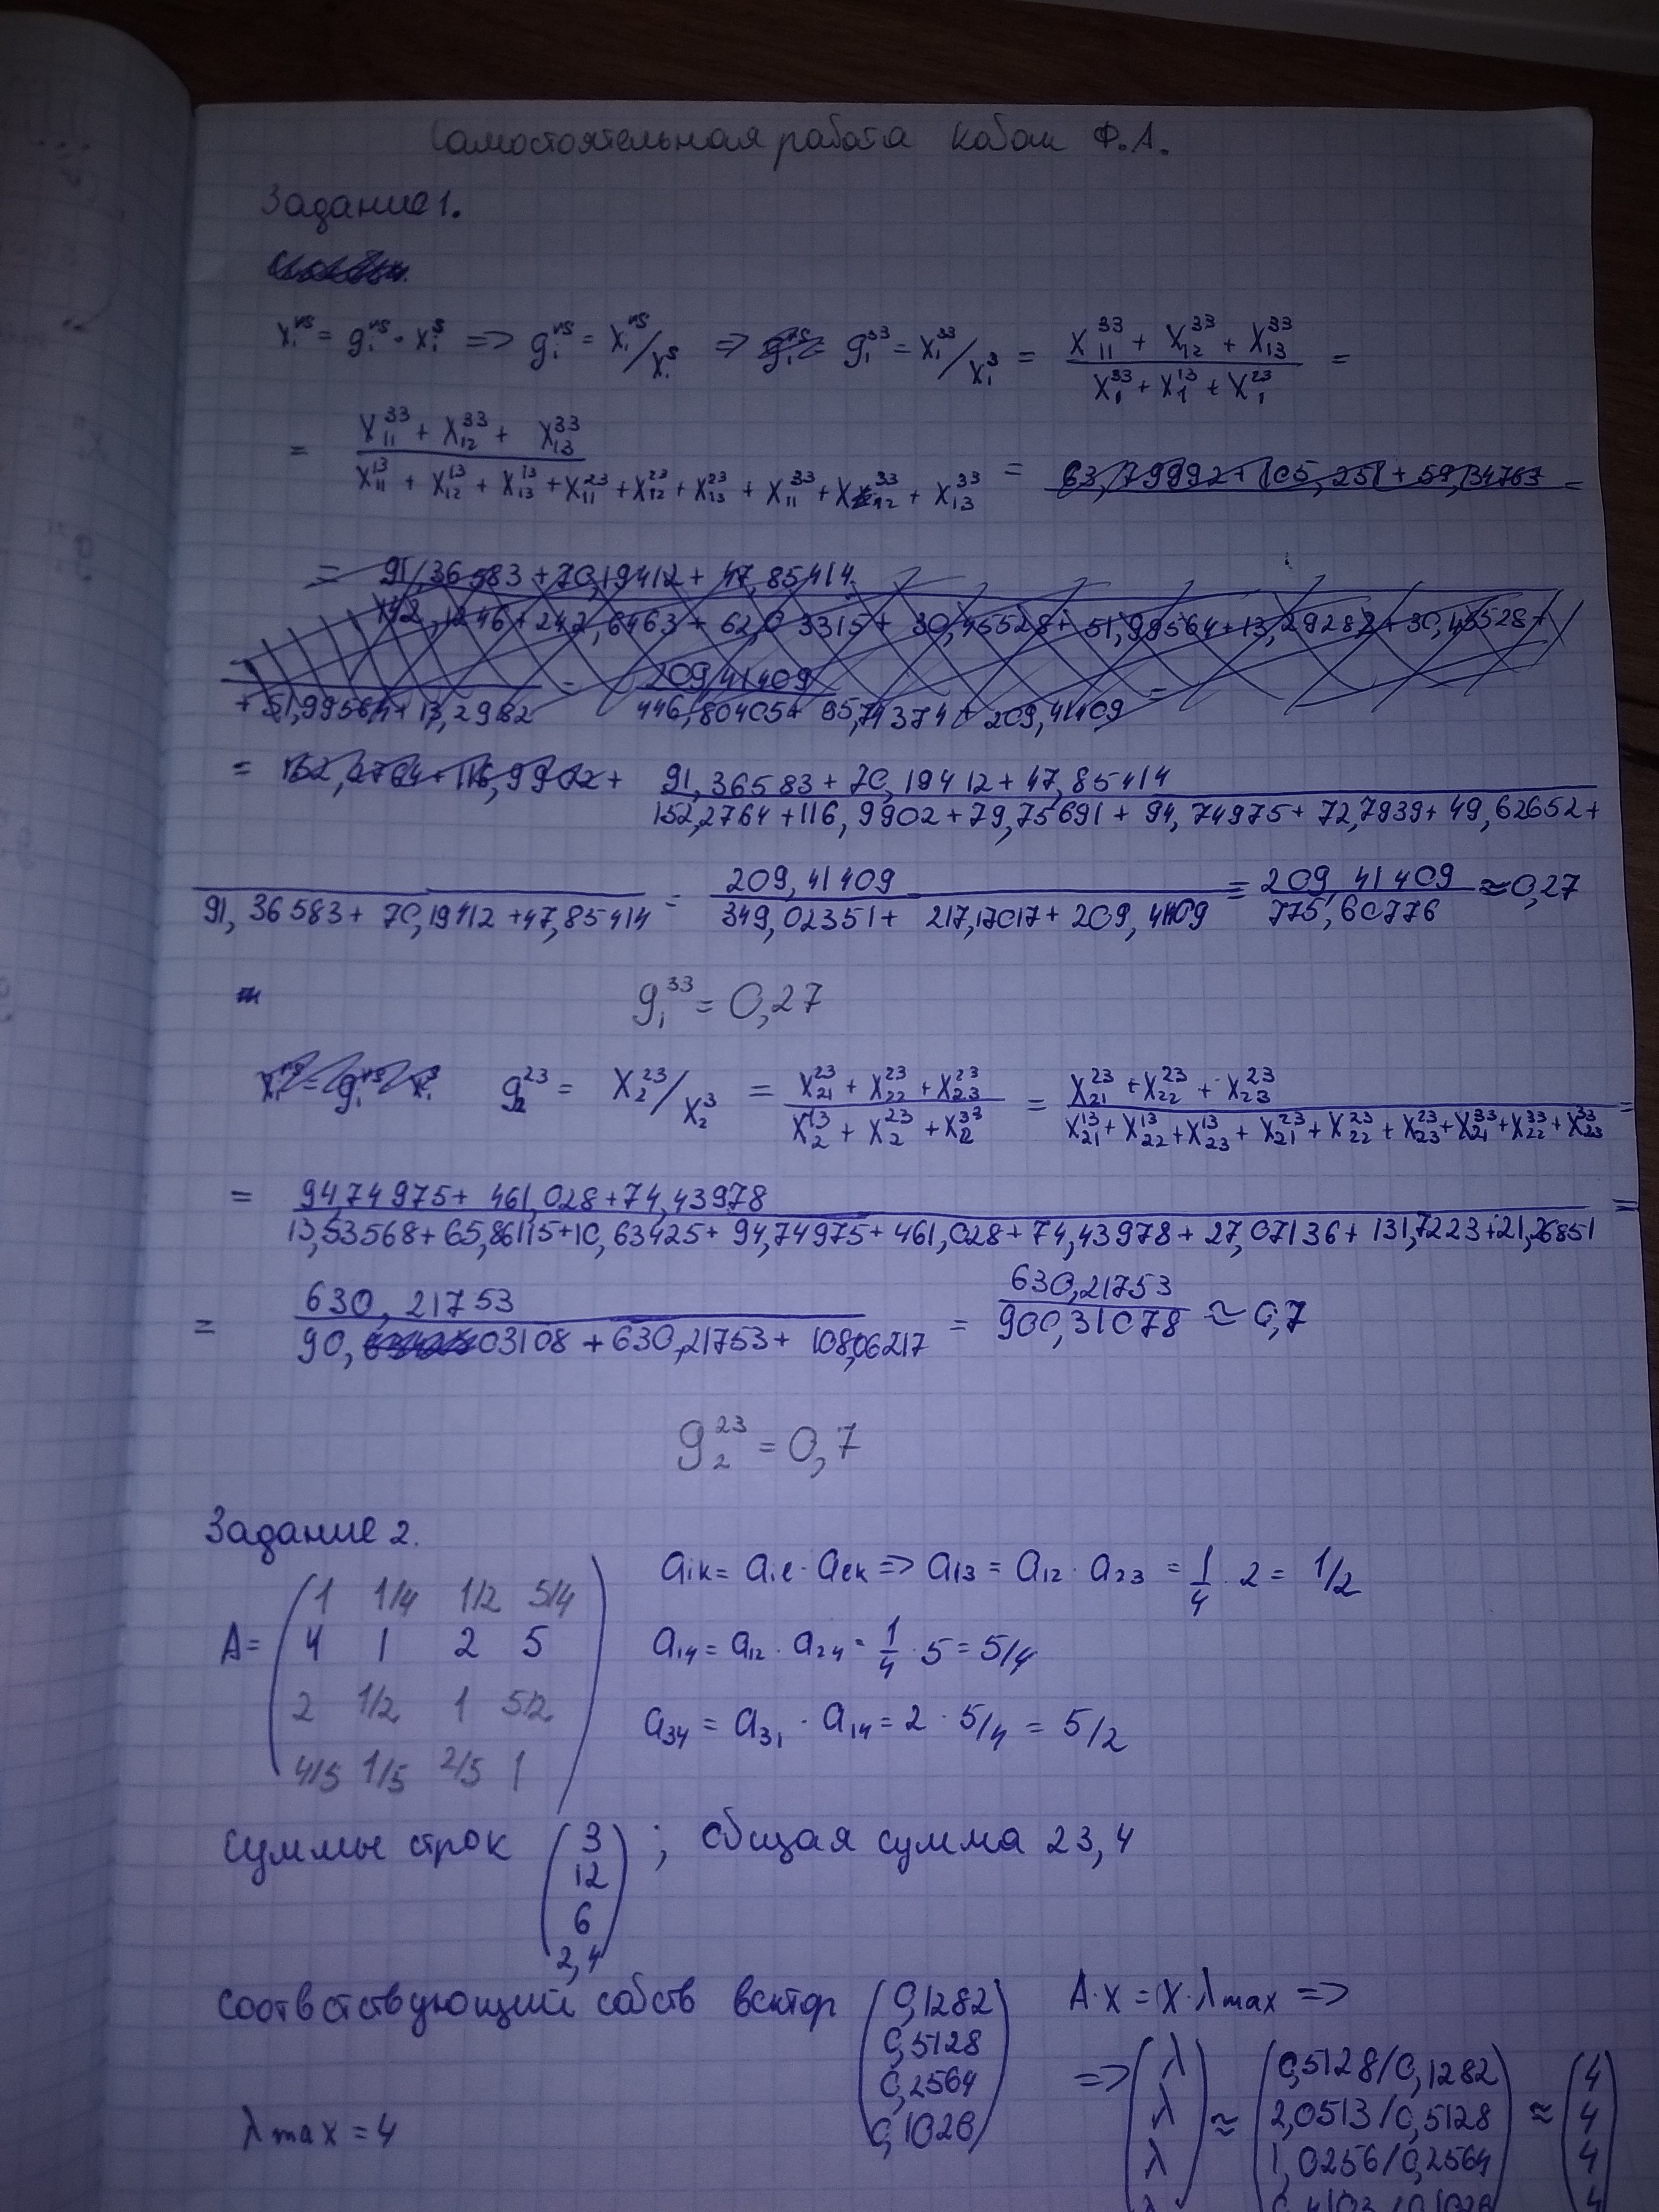 Самостоятельная работа Кобак Ф.А.
Задание 1.
x_i^{rs} = g_i^{rs} · x_i^s => g_i^{rs} = x_i^{rs}/x_i^s => g_1^{33} = x_1^{33}/x_1^3 = (x_{11}^{33} + x_{12}^{33} + x_{13}^{33})/(x_1^{33} + x_1^{13} + x_1^{23}) =
= (x_{11}^{33} + x_{12}^{33} + x_{13}^{33})/(x_{11}^{13} + x_{12}^{13} + x_{13}^{13} + x_{11}^{23} + x_{12}^{23} + x_{13}^{23} + x_{11}^{33} + x_{12}^{33} + x_{13}^{33}) = 63,79992 + 105,251 + 59,34763 =
= 91,36583 + 70,19412 + 47,85414
142,1246 + 242,6463 + 62,03315 + 30,45528 + 51,99564 + 13,29282 + 30,45528 +
+ 51,99564 + 13,2982 = 209,41409/(446,80405 + 95,74374 + 209,41409) =
= 152,2764 + 116,9902 + 91,36583 + 70,19412 + 47,85414
152,2764 + 116,9902 + 79,75691 + 94,74975 + 72,7939 + 49,62652 +
91,36583 + 70,19412 + 47,85414 = 209,41409/(349,02351 + 217,17017 + 209,41409) = 209,41409/775,60776 ≈ 0,27
g_1^{33} = 0,27
x_i^{rs} = g_i^{rs} x_i^s g_2^{23} = x_2^{23}/x_2^3 = (x_{21}^{23} + x_{22}^{23} + x_{23}^{23})/(x_2^{13} + x_2^{23} + x_2^{33}) = (x_{21}^{23} + x_{22}^{23} + x_{23}^{23})/(x_{21}^{13} + x_{22}^{13} + x_{23}^{13} + x_{21}^{23} + x_{22}^{23} + x_{23}^{23} + x_{21}^{33} + x_{22}^{33} + x_{23}^{33}) =
= 94,74975 + 461,028 + 74,43978
13,53568 + 65,86115 + 10,63425 + 94,74975 + 461,028 + 74,43978 + 27,07136 + 131,7223 + 21,26851 =
= 630,21753/(90,03108 + 630,21753 + 108,06217) = 630,21753/900,31078 ≈ 0,7
g_2^{23} = 0,7
Задание 2.
A = (1 1/4 1/2 5/4
4 1 2 5
2 1/2 1 5/2
4/5 1/5 2/5 1)
a_{ik} = a_{ie} · a_{ek} => a_{13} = a_{12} · a_{23} = 1/4 · 2 = 1/2
a_{14} = a_{12} · a_{24} = 1/4 · 5 = 5/4
a_{34} = a_{31} · a_{14} = 2 · 5/4 = 5/2
Суммы строк (3
12
6
2,4); общая сумма 23,4
Соответствующий собств вектор (0,1282
0,5128
0,2564
0,1026)
A·X = X·λmax =>
=> (λ
λ
λ
≈ (0,5128/0,1282
2,0513/0,5128
1,0256/0,2564
≈ (4
4
4
λmax = 4